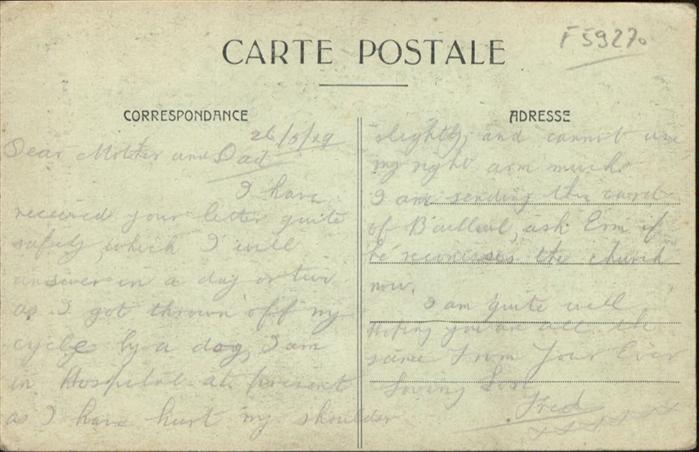 F 59270
CARTE POSTALE
CORRESPONDANCE
26/5/19
Dear Mother and Dad
I have
received your letter quite
safely, which I will
answer in a day or two
as I got thrown off my
cycle by a dog, I am
in Hospital at present
as I have hurt my shoulder
ADRESSE
slightly, and cannot use
my right arm much.
I am sending this card
of Bailleul, ask Ern if
he reconises the church
now.
I am quite well
Hoping you are all the
same From Your Ever
Loving Son
Fred
xxxxxxx